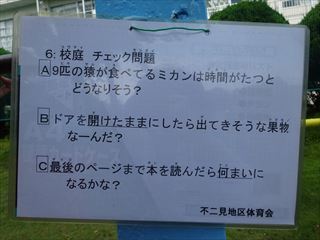 6：校庭　チェック問題
A 9匹の猿が食べてるミカンは時間がたつと
どうなりそう？
B ドアを開けたままにしたら出てきそうな果物
なーんだ？
C 最後のページまで本を読んだら何まいに
なるかな？
不二見地区体育会